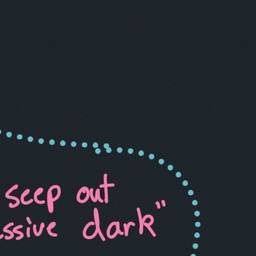 seep out
ssive dark"